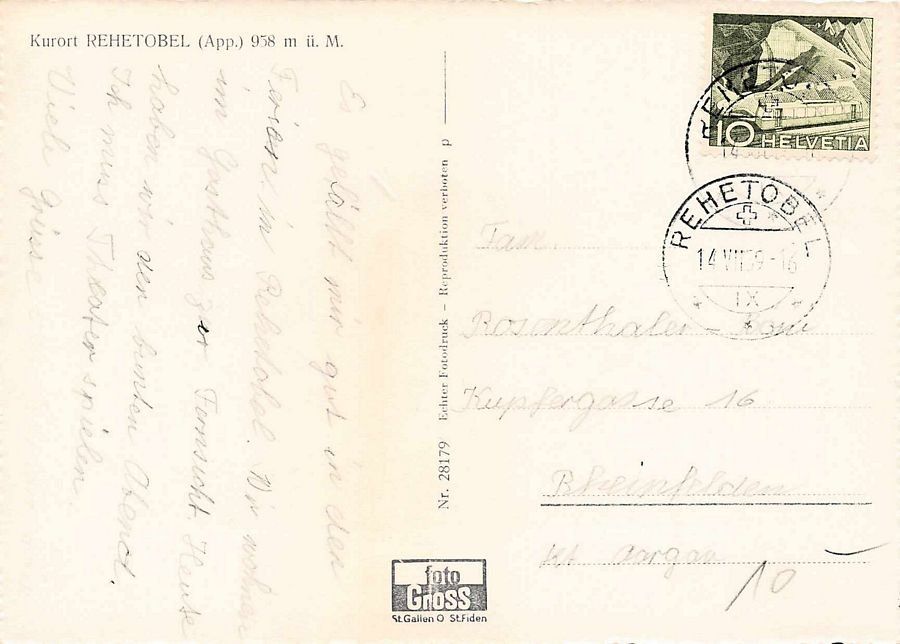 Kurort REHETOBEL (App.) 958 m ü. M.
Es gefällt mir gut in den
Ferien in Rehetobel. Wir wohnen
im Gasthaus zur Fernsicht. Heute
haben wir den bunten Abend.
Ich muss Theater spielen.
Viele Grüsse
Nr. 28179 Echter Fotodruck – Reproduktion verboten p
foto
Gross
St.Gallen O St.Fiden
10 HELVETIA
REHETOBEL
14
REHETOBEL
14 VII 59-16
IX
Fam.
Rosenthaler –
Kupfergasse 16
Rheinfelden
Kt Aargau
10